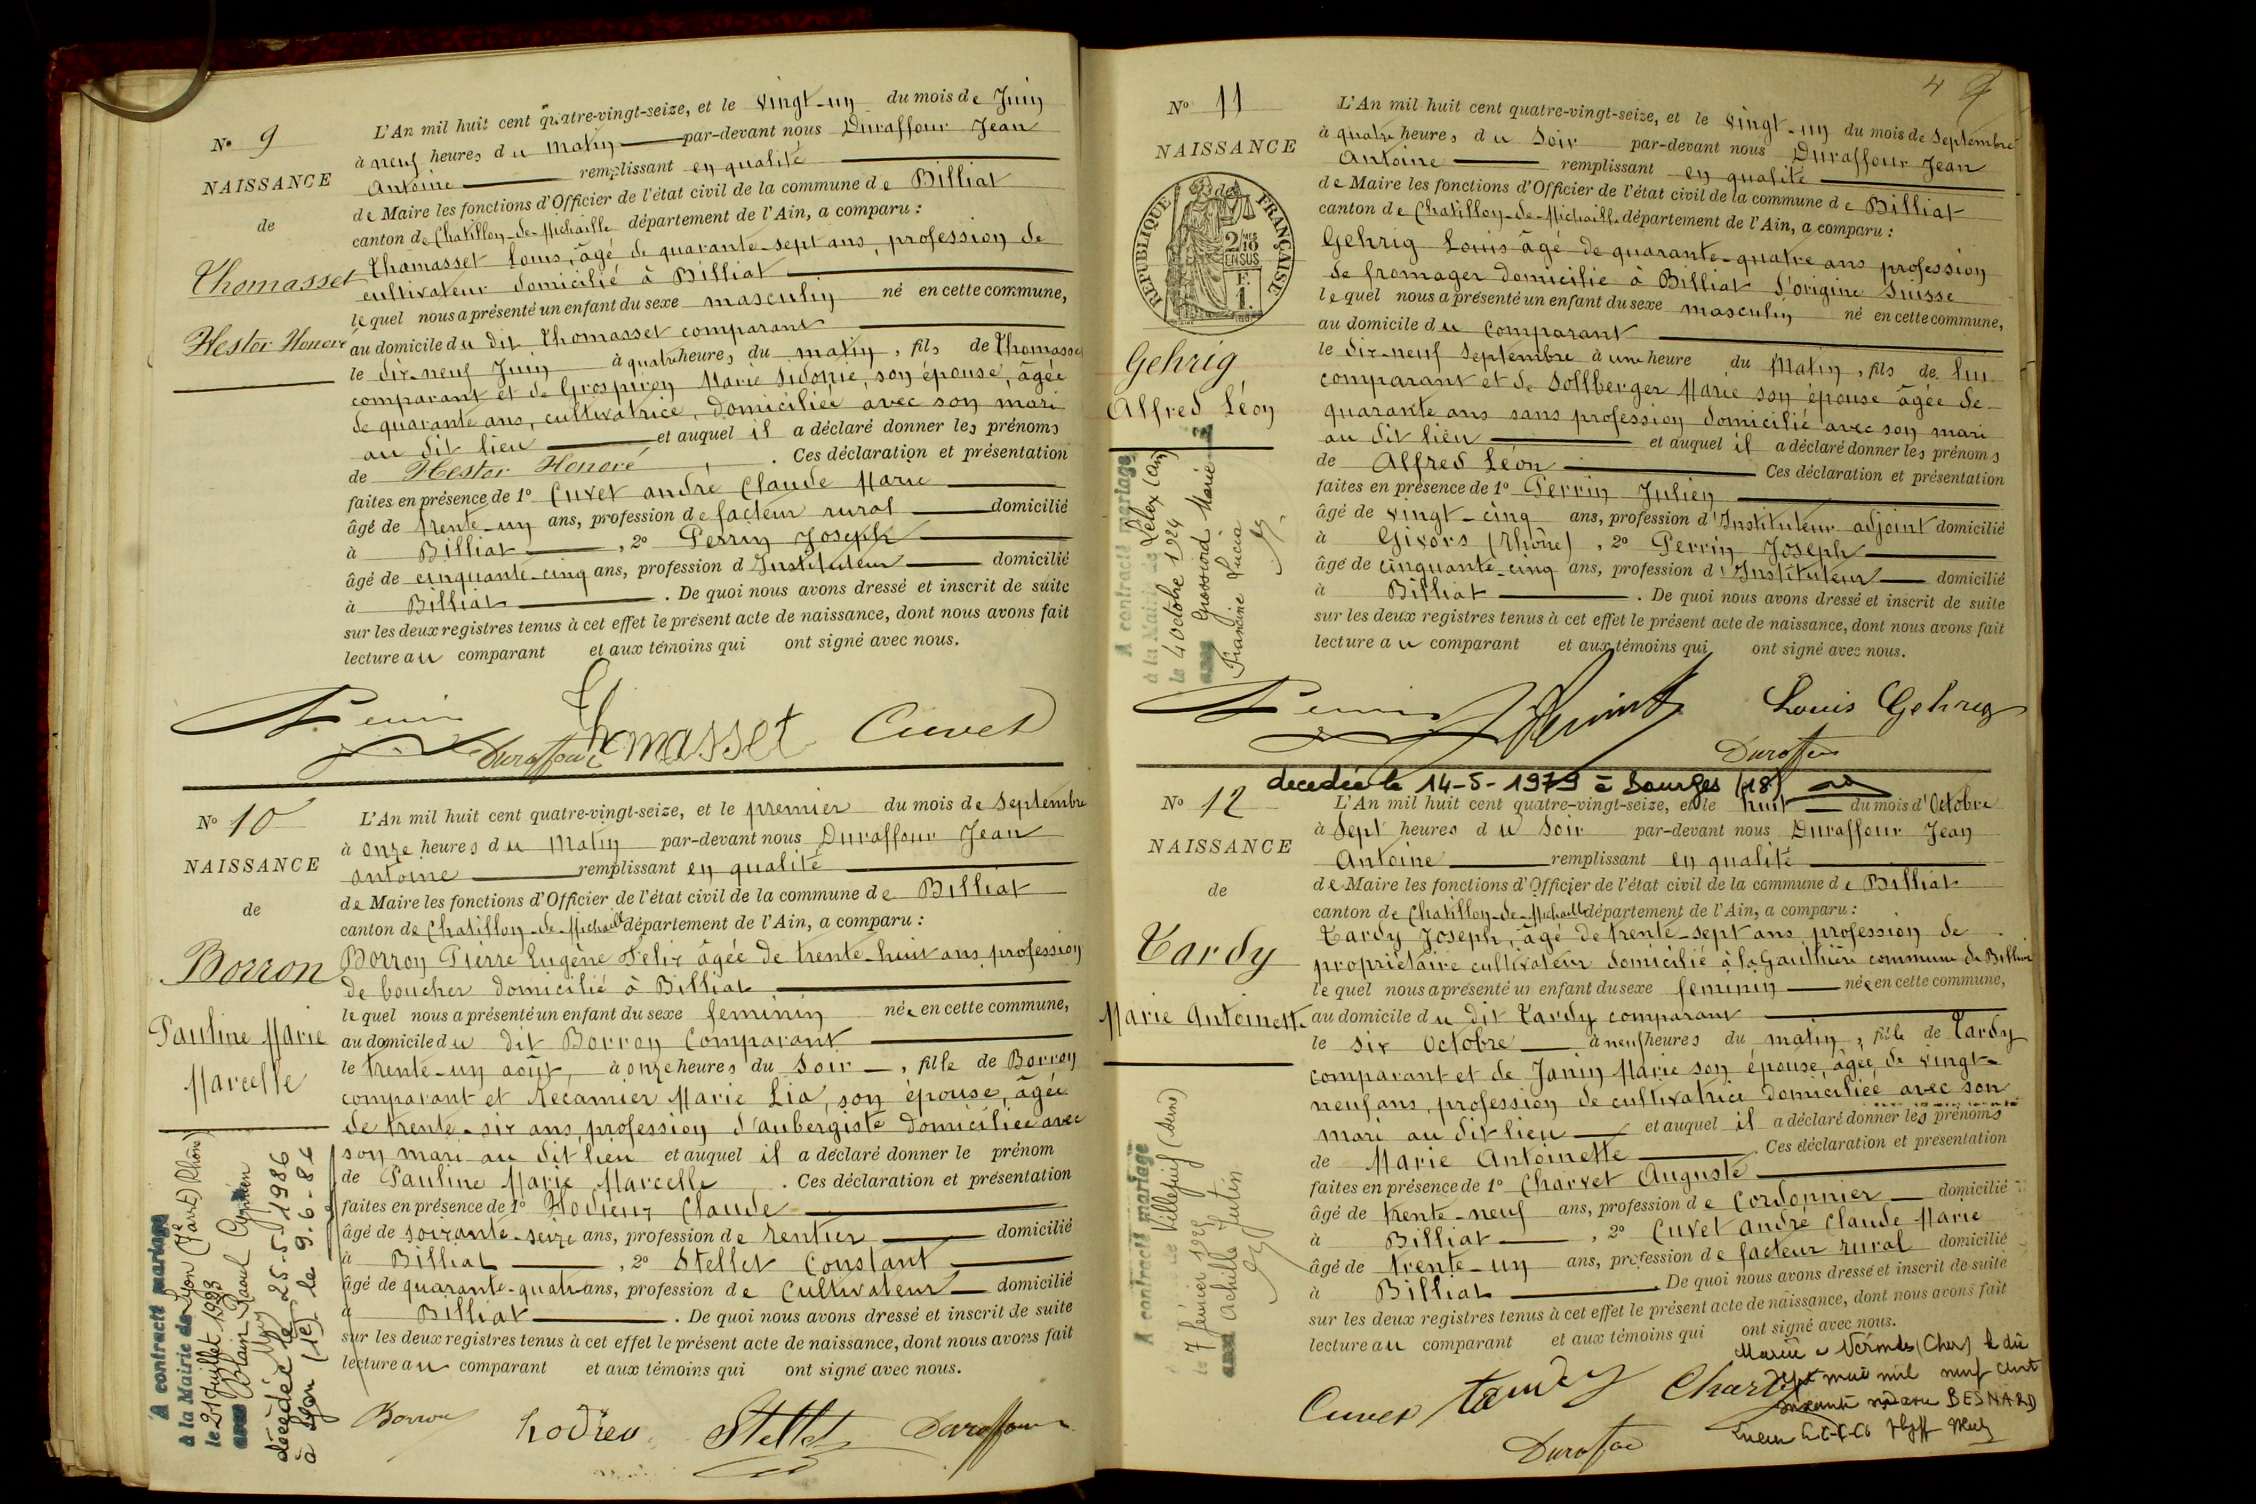 N° 9
NAISSANCE
de
Thomasset
Hestor Honoré
L'An mil huit cent quatre-vingt-seize, et le vingt-un du mois de Juin
à neuf heures du matin par-devant nous Duraffour Jean
Antoine remplissant en qualité
de Maire les fonctions d'Officier de l'état civil de la commune de Billiat
canton de Chatillon-de-Michaille département de l'Ain, a comparu :
Thomasset Louis, âgé de quarante-sept ans, profession de
cultivateur domicilié à Billiat
lequel nous a présenté un enfant du sexe masculin né en cette commune,
au domicile du dit Thomasset comparant
le dix-neuf Juin à quatre heures du matin, fils de Thomasset
comparant et de Grospiron Marie Sidonie, son épouse, âgée
de quarante ans, cultivatrice, domiciliée avec son mari
au dit lieu et auquel il a déclaré donner les prénoms
de Hestor Honoré . Ces déclaration et présentation
faites en présence de 1° Cuvet andré Claude Marie
âgé de trente-un ans, profession de facteur rural domicilié
à Billiat , 2° Perrin Joseph
âgé de cinquante-cinq ans, profession d Instituteur domicilié
à Billiat . De quoi nous avons dressé et inscrit de suite
sur les deux registres tenus à cet effet le présent acte de naissance, dont nous avons fait
lecture au comparant et aux témoins qui ont signé avec nous.
Perrin Duraffour Thomasset Cuvet
N° 10
NAISSANCE
de
Borron
Pauline Marie
Marcelle
A contracté mariage
à la Mairie de Lyon (7e arrt) Rhône)
le 21 Juillet 1923
avec Blain Raoul Cyprien
décédée le 25-5-1986
à Lyon (1e) le 9-6-86
L'An mil huit cent quatre-vingt-seize, et le premier du mois de Septembre
à onze heures du Matin par-devant nous Duraffour Jean
antoine remplissant en qualité
de Maire les fonctions d'Officier de l'état civil de la commune de Billiat
canton de Chatillon-de-Michaille département de l'Ain, a comparu :
Borron Pierre Eugène Felix âgée de trente-huit ans, profession
de boucher domicilié à Billiat
lequel nous a présenté un enfant du sexe feminin née en cette commune,
au domicile du dit Borron Comparant
le trente-un août, à onze heures du Soir, fille de Borron
comparant et Recamier Marie Lia, son épouse, âgée
de trente-six ans, profession d'aubergiste domiciliée avec
son mari au dit lieu et auquel il a déclaré donner le prénom
de Pauline Marie Marcelle . Ces déclaration et présentation
faites en présence de 1° Hodieux Claude
âgé de soixante-seize ans, profession de rentier domicilié
à Billiat , 2° Stellet Constant
âgé de quarante-quatre ans, profession de Cultivateur domicilié
à Billiat . De quoi nous avons dressé et inscrit de suite
sur les deux registres tenus à cet effet le présent acte de naissance, dont nous avons fait
lecture au comparant et aux témoins qui ont signé avec nous.
Borron hodieu Stellet Duraffour
4
N° 11
NAISSANCE
de
RÉPUBLIQUE FRANÇAISE
2/10 EN SUS
F. 1.
Gehrig
Alfred Léon
A contracté mariage
à la Mairie de Lélex (Ain)
le 4 octobre 1924
avec Grossiord Marie
Francine Lucia
L'An mil huit cent quatre-vingt-seize, et le vingt-un du mois de Septembre
à quatre heures du Soir par-devant nous Duraffour Jean
Antoine remplissant en qualité
de Maire les fonctions d'Officier de l'état civil de la commune de Billiat
canton de Chatillon-de-Michaille département de l'Ain, a comparu :
Gehrig Louis âgé de quarante-quatre ans profession
de fromager domicilié à Billiat d'origine Suisse
lequel nous a présenté un enfant du sexe masculin né en cette commune,
au domicile du Comparant
le dix-neuf Septembre à une heure du Matin, fils de lui
comparant et de Sollberger Marie son épouse âgée de
quarante ans sans profession domicilié avec son mari
au dit lieu et auquel il a déclaré donner les prénoms
de Alfred Léon Ces déclaration et présentation
faites en présence de 1° Perrin Julien
âgé de vingt-cinq ans, profession d'Instituteur adjoint domicilié
à Givors (Rhône) , 2° Perrin Joseph
âgé de cinquante-cinq ans, profession d'Instituteur domicilié
à Billiat . De quoi nous avons dressé et inscrit de suite
sur les deux registres tenus à cet effet le présent acte de naissance, dont nous avons fait
lecture au comparant et aux témoins qui ont signé avec nous.
Perrin Louis Gehrig
Duraffour
decedée le 14-5-1979 à Bourges (18)
N° 12
NAISSANCE
de
Tardy
Marie Antoinette
A contracté mariage
Villejuif (Seine)
le 7 février 1925
avec Achille Justin
L'An mil huit cent quatre-vingt-seize, et le huit du mois d'Octobre
à Sept heures du Soir par-devant nous Duraffour Jean
Antoine remplissant en qualité
de Maire les fonctions d'Officier de l'état civil de la commune de Billiat
canton de Chatillon-de-Michaille département de l'Ain, a comparu :
Tardy Joseph, âgé de trente-sept ans, profession de
propriétaire cultivateur domicilié à la Gauthière commune de Billiat
lequel nous a présenté un enfant du sexe feminin née en cette commune,
au domicile du dit Tardy comparant
le six Octobre à neuf heures du matin, fille de Tardy
comparant et de Janin Marie son épouse, âgée de vingt-
neuf ans, profession de cultivatrice domiciliée avec son
mari au dit lieu et auquel il a déclaré donner les prénoms
de Marie Antoinette Ces déclaration et présentation
faites en présence de 1° Charvet Auguste
âgé de trente-neuf ans, profession de Cordonnier domicilié
à Billiat , 2° Cuvet andré Claude Marie
âgé de trente-un ans, profession de facteur rural domicilié
à Billiat De quoi nous avons dressé et inscrit de suite
sur les deux registres tenus à cet effet le présent acte de naissance, dont nous avons fait
lecture au comparant et aux témoins qui ont signé avec nous.
Mariée à (Cher) le dix
sept mai mil neuf cent
soixante avec BESNARD
Lucien
Cuvet tardy Charvet
Duraffour